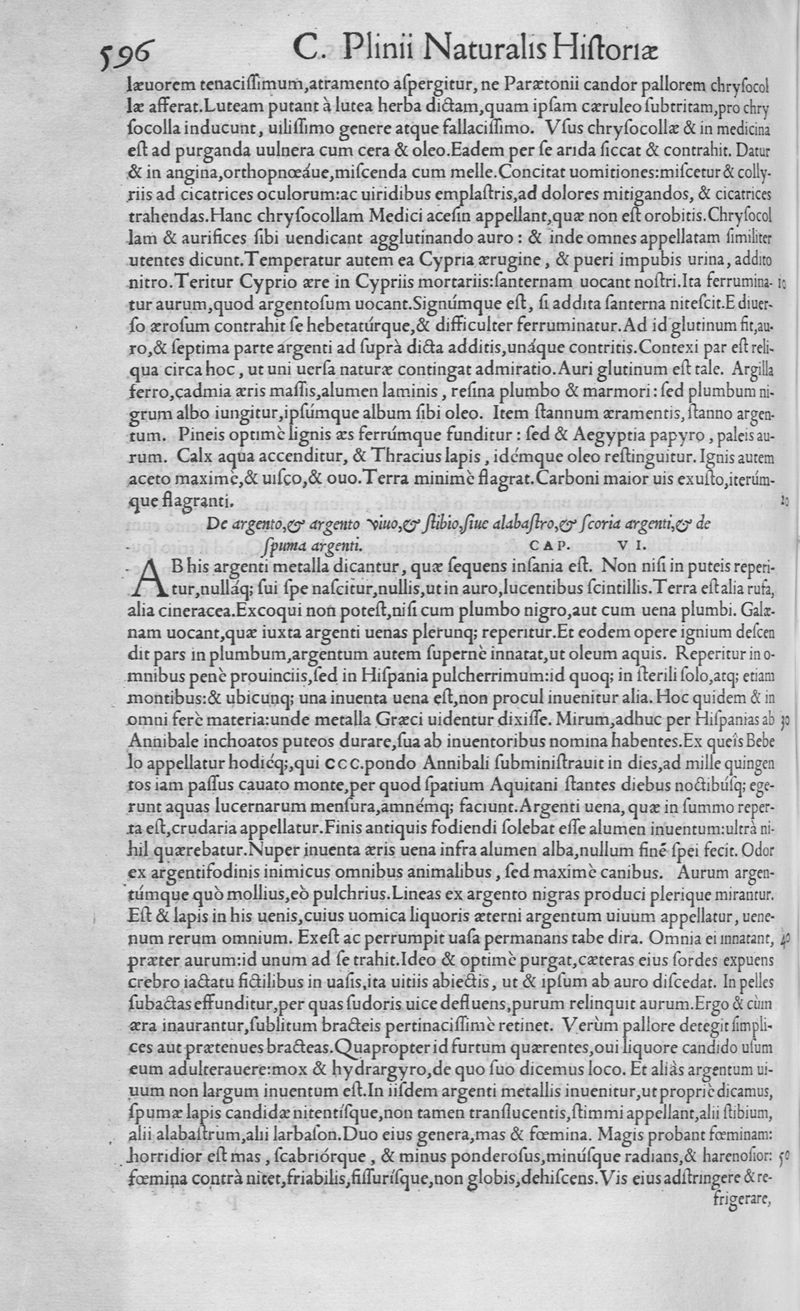 596 C. Plinii Naturalis Hiſtoriæ
læuorem tenaciſſimum,atramento aſpergitur, ne Parætonii candor pallorem chryſocol
læ afferat.Luteam putant à lutea herba dictam,quam ipſam cæruleo ſubtritam,pro chry
ſocolla inducunt, uiliſſimo genere atque fallaciſſimo. Vſus chryſocollæ & in medicina
eſt ad purganda uulnera cum cera & oleo.Eadem per ſe arida ſiccat & contrahit. Datur
& in angina,orthopnœáue,miſcenda cum melle.Concitat uomitiones:miſcetur & colly-
riis ad cicatrices oculorum:ac uiridibus emplaſtris,ad dolores mitigandos, & cicatrices
trahendas.Hanc chryſocollam Medici aceſin appellant,quæ non eſt orobitis.Chryſocol
lam & aurifices ſibi uendicant agglutinando auro : & inde omnes appellatam ſimiliter
utentes dicunt.Temperatur autem ea Cypria ærugine, & pueri impubis urina, addito
nitro.Teritur Cyprio ære in Cypriis mortariis:ſanternam uocant noſtri.Ita ferrumina- 10
tur aurum,quod argentoſum uocant.Signúmque eſt, ſi addita ſanterna niteſcit.E diuer-
ſo æroſum contrahit ſe hebetatúrque,& difficulter ferruminatur.Ad id glutinum fit,au-
ro,& ſeptima parte argenti ad ſuprà dicta additis,unáque contritis.Contexi par eſt reli-
qua circa hoc, ut uni uerſa naturæ contingat admiratio.Auri glutinum eſt tale. Argilla
ferro,cadmia æris maſſis,alumen laminis, reſina plumbo & marmori: ſed plumbum ni-
grum albo iungitur,ipſúmque album ſibi oleo. Item ſtannum æramentis, ſtanno argen-
tum. Pineis optimè lignis æs ferrúmque funditur : ſed & Aegyptia papyro, paleis au-
rum. Calx aqua accenditur, & Thracius lapis, idémque oleo reſtinguitur. Ignis autem
aceto maximè,& uiſco,& ouo.Terra minimè flagrat.Carboni maior uis exuſto,iterúm-
que flagranti. 20
De argento,& argento viuo,& ſtibio,ſiue alabaſtro,& ſcoria argenti,& de
ſpuma argenti. CAP. VI.
AB his argenti metalla dicantur, quæ ſequens inſania eſt. Non niſi in puteis reperi-
tur,nulláq; ſui ſpe naſcitur,nullis,ut in auro,lucentibus ſcintillis.Terra eſt alia rufa,
alia cineracea.Excoqui non poteſt,niſi cum plumbo nigro,aut cum uena plumbi. Galæ-
nam uocant,quæ iuxta argenti uenas plerunq; reperitur.Et eodem opere ignium deſcen
dit pars in plumbum,argentum autem ſupernè innatat,ut oleum aquis. Reperitur in o-
mnibus penè prouinciis,ſed in Hiſpania pulcherrimum:id quoq; in ſterili ſolo,atq; etiam
montibus:& ubicunq; una inuenta uena eſt,non procul inuenitur alia. Hoc quidem & in
omni ferè materia:unde metalla Græci uidentur dixiſſe. Mirum,adhuc per Hiſpanias ab 30
Annibale inchoatos puteos durare,ſua ab inuentoribus nomina habentes.Ex queîs Bebe
lo appellatur hodiéq;,qui CCC.pondo Annibali ſubminiſtrauit in dies,ad mille quingen
tos iam paſſus cauato monte,per quod ſpatium Aquitani ſtantes diebus noctibúſq; ege-
runt aquas lucernarum menſura,amnémq; faciunt.Argenti uena, quæ in ſummo reper-
ta eſt,crudaria appellatur.Finis antiquis fodiendi ſolebat eſſe alumen inuentum:ultrà ni-
hil quærebatur.Nuper inuenta æris uena infra alumen alba,nullum finé ſpei fecit. Odor
ex argentifodinis inimicus omnibus animalibus, ſed maximè canibus. Aurum argen-
túmque quò mollius,eò pulchrius.Lineas ex argento nigras produci plerique mirantur.
Eſt & lapis in his uenis,cuius uomica liquoris æterni argentum uiuum appellatur, uene-
num rerum omnium. Exeſt ac perrumpit uaſa permanans tabe dira. Omnia ei innatant, 40
præter aurum:id unum ad ſe trahit.Ideo & optimè purgat,cæteras eius ſordes expuens
crebro iactatu fictilibus in uaſis,ita uitiis abiectis, ut & ipſum ab auro diſcedat. In pelles
ſubactas effunditur,per quas ſudoris uice defluens,purum relinquit aurum.Ergo & cùm
æra inaurantur,ſublitum bracteis pertinaciſſimè retinet. Verùm pallore detegit ſimpli-
ces aut prætenues bracteas.Quapropter id furtum quærentes,oui liquore candido uſum
eum adulterauere:mox & hydrargyro,de quo ſuo dicemus loco. Et aliàs argentum ui-
uum non largum inuentum eſt.In iiſdem argenti metallis inuenitur,ut propriè dicamus,
ſpumæ lapis candidæ nitentíſque,non tamen tranſlucentis,ſtimmi appellant,alii ſtibium,
alii alabaſtrum,alii larbaſon.Duo eius genera,mas & fœmina. Magis probant fœminam:
horridior eſt mas, ſcabriórque, & minus ponderoſus,minúſque radians,& harenoſior: 50
fœmina contrà nitet,friabilis,fiſſuríſque,non globis,dehiſcens.Vis eius adſtringere & re-
frigerare,